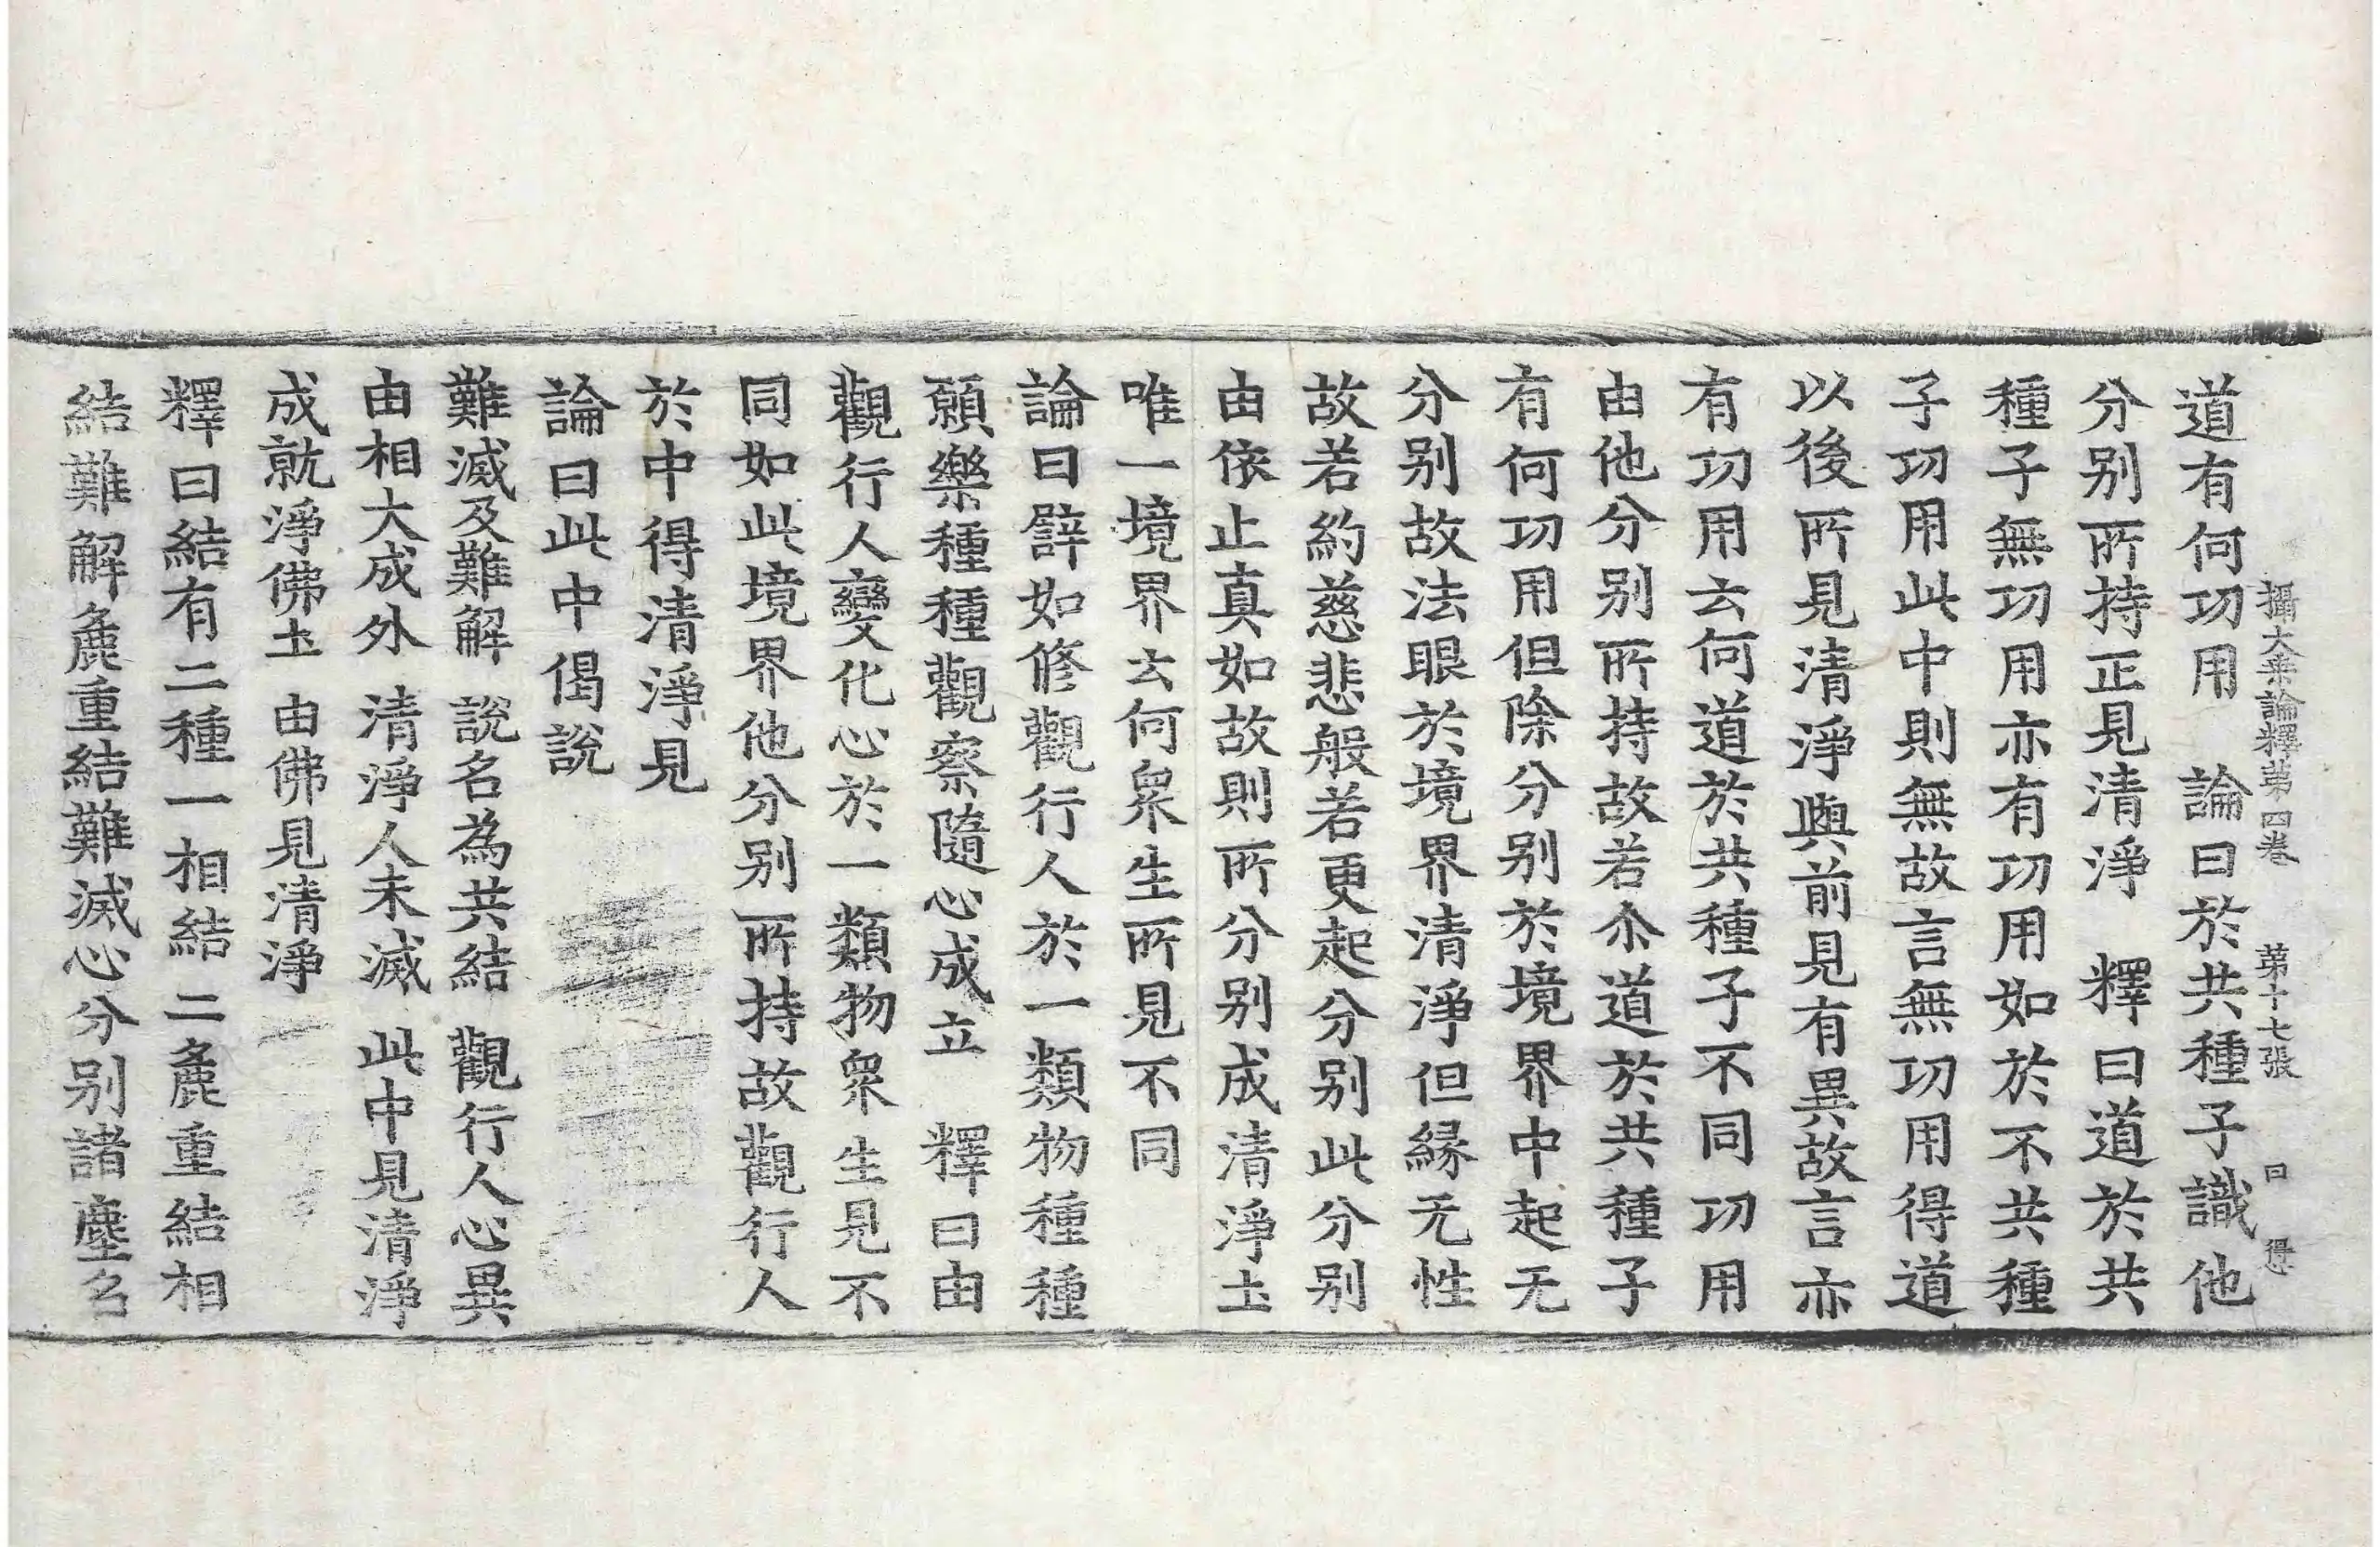 攝大乗論釋苐四巻 苐十七張 曰 得
道有何功用 論曰於共種子識他
分别所持正見清淨 釋曰道於共
種子無功用亦有功用如於不共種
子功用此中則無故言無功用得道
以後所見清淨與前見有異故言亦
有功用云何道於共種子不同功用
由他分别所持故若尒道於共種子
有何功用但除分别於境界中起无
分别故法眼於境界清淨但縁无性
故若約慈悲般若更起分别此分别
由依止真如故則所分别成清淨𡈽
唯一境界云何衆生所見不同
論曰譬如修觀行人於一類物種種
願樂種種觀察隨心成立 釋曰由
觀行人變化心於一類物衆生見不
同如此境界他分别所持故觀行人
於中得清淨見
論曰此中偈說
難滅及難解 說名為共結 觀行人心異
由相大成外 清淨人未滅 此中見清淨
成就淨佛𡈽 由佛見清淨
釋曰結有二種一相結二麁重結相
結難解麁重結難滅心分别諸塵名